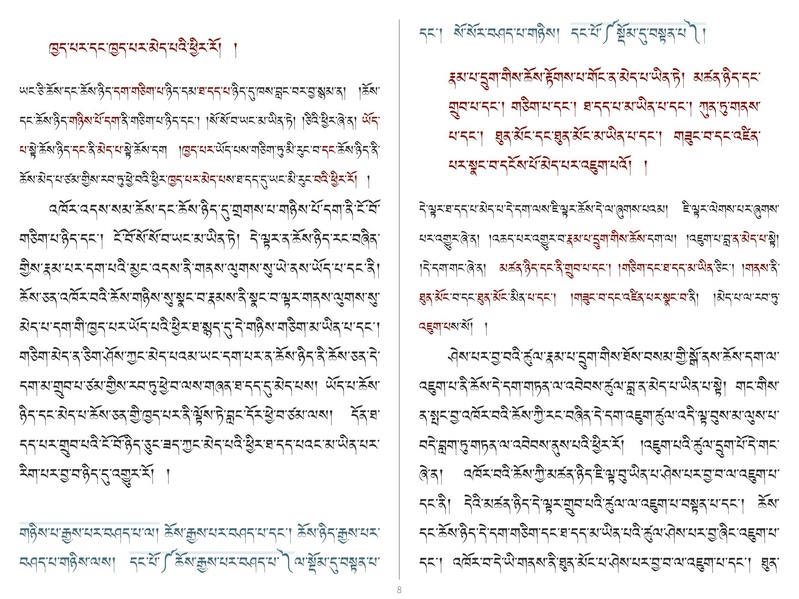 ཁྱད་པར་དང་ཁྱད་པར་མེད་པའི་ཕྱིར་རོ། །
ཡང་ཅི་ཆོས་དང་ཆོས་ཉིད་དག་གཅིག་པ་ཉིད་དམ་ཐ་དད་པ་ཉིད་དུ་ཁས་བླང་བར་བྱ་སྙམ་ན། །ཆོས་
དང་ཆོས་ཉིད་གཉིས་པོ་དག་ནི་གཅིག་པ་ཉིད་དང་། །སོ་སོ་བ་ཡང་མ་ཡིན་ཏེ། །ཅིའི་ཕྱིར་ཞེ་ན། ཡོད་
པ་སྟེ་ཆོས་ཉིད་དང་ནི་མེད་པ་སྟེ་ཆོས་དག །ཁྱད་པར་ཡོད་པས་གཅིག་ཏུ་མི་རུང་བ་དང་ཆོས་ཉིད་ནི་
ཆོས་མེད་པ་ཙམ་གྱིས་རབ་ཏུ་ཕྱེ་བའི་ཕྱིར་ཁྱད་པར་མེད་པས་ཐ་དད་དུ་ཡང་མི་རུང་བའི་ཕྱིར་རོ། །
འཁོར་འདས་སམ་ཆོས་དང་ཆོས་ཉིད་དུ་གྲགས་པ་གཉིས་པོ་དག་ནི་ངོ་བོ་
གཅིག་པ་ཉིད་དང་། ངོ་བོ་སོ་སོ་བ་ཡང་མ་ཡིན་ཏེ། དེ་ལྟར་ན་ཆོས་ཉིད་རང་བཞིན་
གྱིས་རྣམ་པར་དག་པའི་མྱང་འདས་ནི་གནས་ལུགས་སུ་ཡེ་ནས་ཡོད་པ་དང་ནི།
ཆོས་ཅན་འཁོར་བའི་ཆོས་གཉིས་སུ་སྣང་བ་རྣམས་ནི་སྣང་བ་ལྟར་གནས་ལུགས་སུ་
མེད་པ་དག་གི་ཁྱད་པར་ཡོད་པའི་ཕྱིར་ཐ་སྙད་དུ་དེ་གཉིས་གཅིག་མ་ཡིན་པ་དང་།
གཅིག་མེད་ན་ཅིག་ཤོས་ཀྱང་མེད་པའམ་ཡང་དག་པར་ན་ཆོས་ཉིད་ནི་ཆོས་ཅན་དེ་
དག་མ་གྲུབ་པ་ཙམ་གྱིས་རབ་ཏུ་ཕྱེ་བ་ལས་གཞན་ཐ་དད་དུ་མེད་པས། ཡོད་པ་ཆོས་
ཉིད་དང་མེད་པ་ཆོས་ཅན་གྱི་ཁྱད་པར་ནི་ལྟོས་ཏེ་བླང་དོར་ཕྱེ་བ་ཙམ་ལས། དོན་ཐ་
དད་པར་གྲུབ་པའི་ངོ་བོ་ཉིད་ཅུང་ཟད་ཀྱང་མེད་པའི་ཕྱིར་ཐ་དད་པའང་མ་ཡིན་པར་
རིག་པར་བྱ་བ་ཉིད་དུ་འགྱུར་རོ། །
གཉིས་པ་རྒྱས་པར་བཤད་པ་ལ། ཆོས་རྒྱས་པར་བཤད་པ་དང་། ཆོས་ཉིད་རྒྱས་པར་
བཤད་པ་གཉིས་ལས། དང་པོ་༼ཆོས་རྒྱས་པར་བཤད་པ་༽ལ་སྡོམ་དུ་བསྟན་པ་
དང་། སོ་སོར་བཤད་པ་གཉིས། དང་པོ་༼སྡོམ་དུ་བསྟན་པ་༽།
རྣམ་པ་དྲུག་གིས་ཆོས་རྟོགས་པ་གོང་ན་མེད་པ་ཡིན་ཏེ། མཚན་ཉིད་དང་
གྲུབ་པ་དང་། གཅིག་པ་དང་། ཐ་དད་པ་མ་ཡིན་པ་དང་། ཀུན་ཏུ་གནས་
པ་དང་། ཐུན་མོང་དང་ཐུན་མོང་མ་ཡིན་པ་དང་། གཟུང་བ་དང་འཛིན་
པར་སྣང་བ་དངོས་པོ་མེད་པར་འཇུག་པའོ། །
དེ་ལྟར་ཐ་དད་པ་མེད་པ་དེ་དག་ལས་ཇི་ལྟར་ཆོས་དེ་ལ་ཞུགས་པའམ། ཇི་ལྟར་ལེགས་པར་ཞུགས་
པར་འགྱུར་ཞེ་ན། །འཆད་པར་འགྱུར་བ་རྣམ་པ་དྲུག་གིས་ཆོས་དག་ལ། །འཇུག་པ་བླ་ན་མེད་པ་སྟེ།
།དེ་དག་གང་ཞེ་ན། མཚན་ཉིད་དང་ནི་གྲུབ་པ་དང་། །གཅིག་དང་ཐ་དད་མ་ཡིན་ཅིང་། །གནས་ནི་
ཐུན་མོང་བ་དང་ཐུན་མོང་མིན་པ་དང་། །གཟུང་བ་དང་འཛིན་པར་སྣང་བ་ནི། །མེད་པ་ལ་རབ་ཏུ་
འཇུག་པས་སོ། །
ཤེས་པར་བྱ་བའི་ཚུལ་རྣམ་པ་དྲུག་གིས་ཐོས་བསམ་གྱི་སྒོ་ནས་ཆོས་དག་ལ་
འཇུག་པ་ནི་ཆོས་དེ་དག་གཏན་ལ་འབེབས་ཚུལ་བླ་ན་མེད་པ་ཡིན་པ་སྟེ། གང་གིས་
ན་སྤང་བྱ་འཁོར་བའི་ཆོས་ཀྱི་རང་བཞིན་དེ་དག་འཇུག་ཚུལ་འདི་ལྟ་བུས་མ་ལུས་པ་
བདེ་བླག་ཏུ་གཏན་ལ་འབེབས་ནུས་པའི་ཕྱིར་རོ། །འཇུག་པའི་ཚུལ་དྲུག་པོ་དེ་གང་
ཞེ་ན། འཁོར་བའི་ཆོས་ཀྱི་མཚན་ཉིད་ཇི་ལྟ་བུ་ཡིན་པ་ཤེས་པར་བྱ་བ་ལ་འཇུག་པ་
དང་ནི། དེའི་མཚན་ཉིད་དེ་ལྟར་གྲུབ་པའི་ཚུལ་ལ་འཇུག་པ་བསྟན་པ་དང་། ཆོས་
དང་ཆོས་ཉིད་དེ་དག་གཅིག་དང་ཐ་དད་མ་ཡིན་པའི་ཚུལ་ཤེས་པར་བྱ་ཞིང་འཇུག་པ་
དང་། འཁོར་བ་དེ་ཡི་གནས་ནི་ཐུན་མོང་པ་ཤེས་པར་བྱ་བ་ལ་འཇུག་པ་དང་། ཐུན་
8